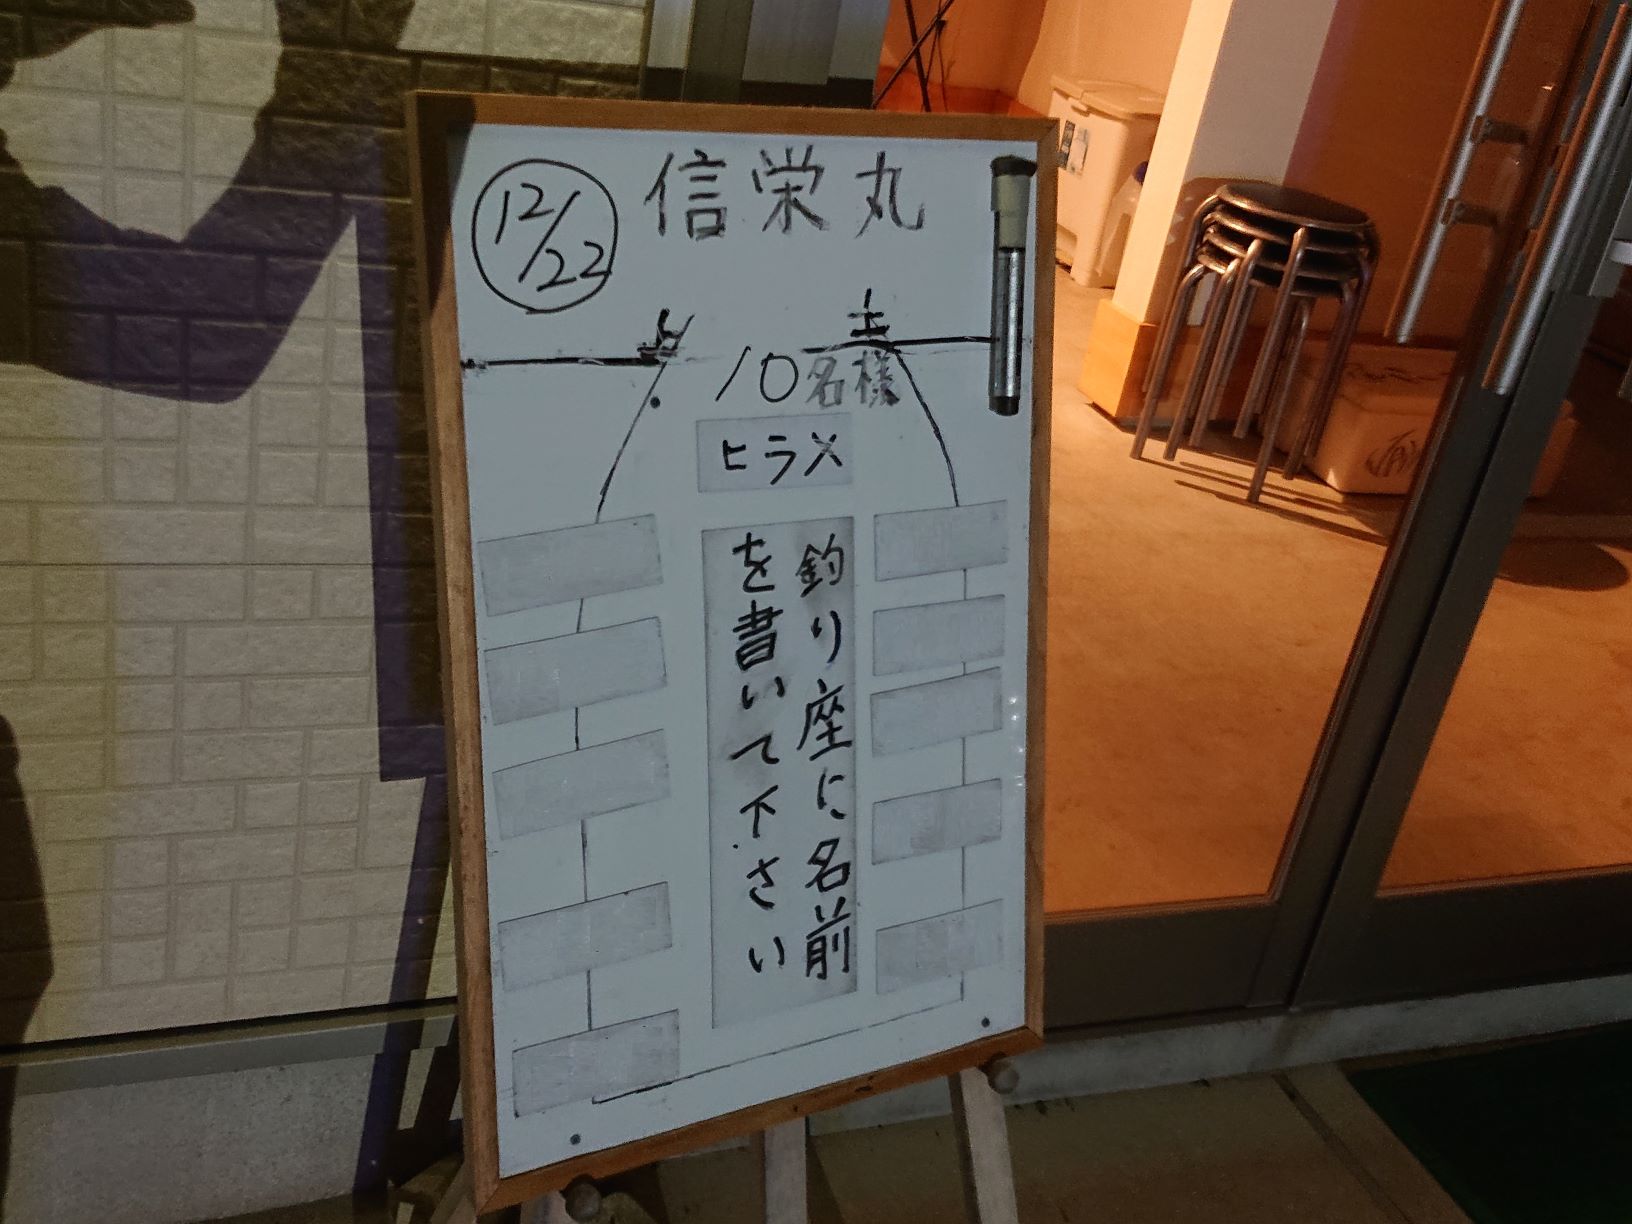 12/22
信栄丸
10名様
ヒラメ
釣り座に名前
を書いて下さい